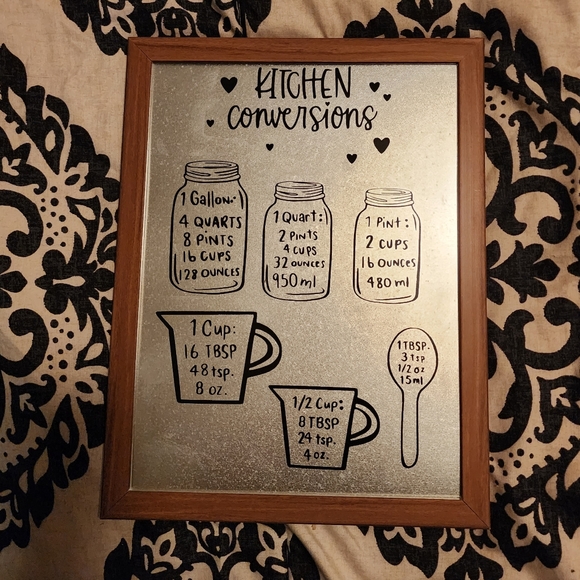 KITCHEN
conversions
1 Gallon:
4 QUARTS
8 PINTS
16 CUPS
128 OUNCES
1 Quart:
2 PINTS
4 CUPS
32 OUNCES
950 ml
1 Pint:
2 CUPS
16 OUNCES
480 ml
1 Cup:
16 TBSP
48 tsp.
8 oz.
1/2 Cup:
8 TBSP
24 tsp.
4 oz.
1 TBSP.
3 tsp
1/2 oz
15 ml